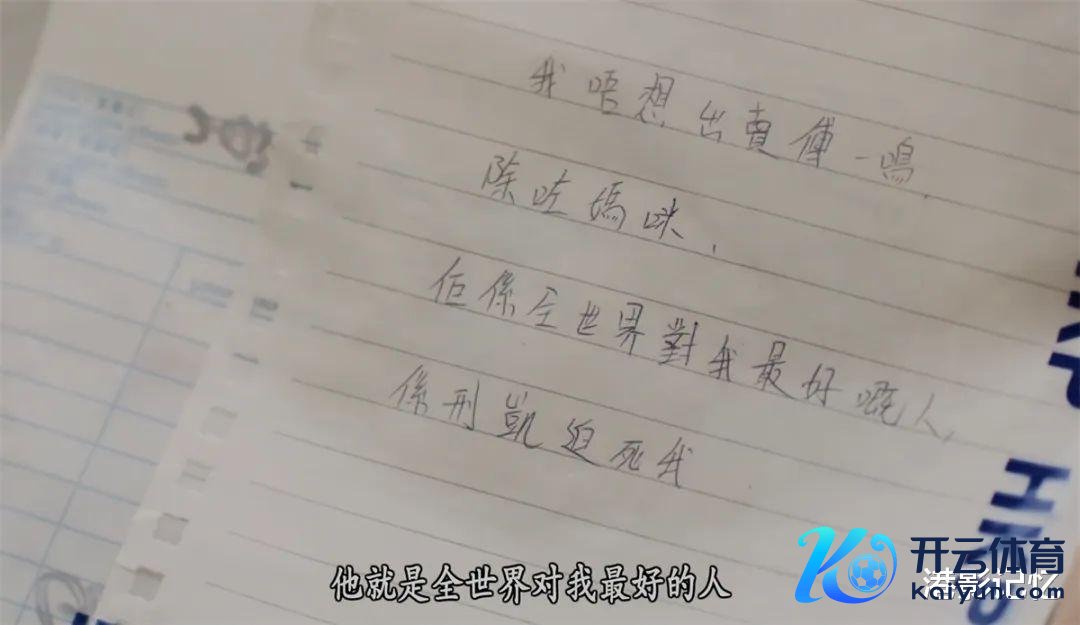 我唔想出賣傅一鳴,
除咗媽咪,
佢係全世界對我最好嘅人,
係刑凱迫死我
HKP
他就是全世界对我最好的人
开云体育
kaiyun.com
港影记忆